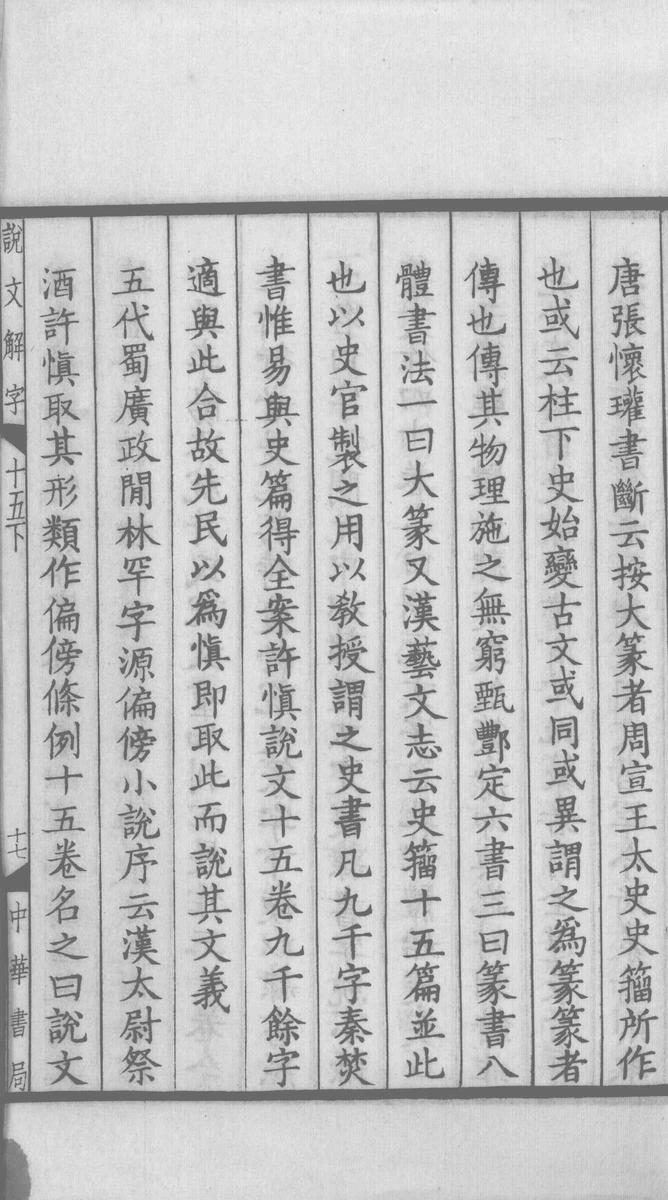 唐張懷瓘書斷云按大篆者周宣王太史史籒所作
也或云柱下史始變古文或同或異謂之爲篆篆者
傳也傳其物理施之無窮甄酆定六書三曰篆書八
體書法一曰大篆又漢藝文志云史籒十五篇並此
也以史官製之用以敎授謂之史書凡九千字秦焚
書惟易與史篇得全案許愼說文十五卷九千餘字
適與此合故先民以爲愼即取此而說其文義
五代蜀廣政閒林罕字源偏傍小說序云漢太尉祭
酒許愼取其形類作偏傍條例十五卷名之曰說文
說文解字 十五下
十七
中華書局